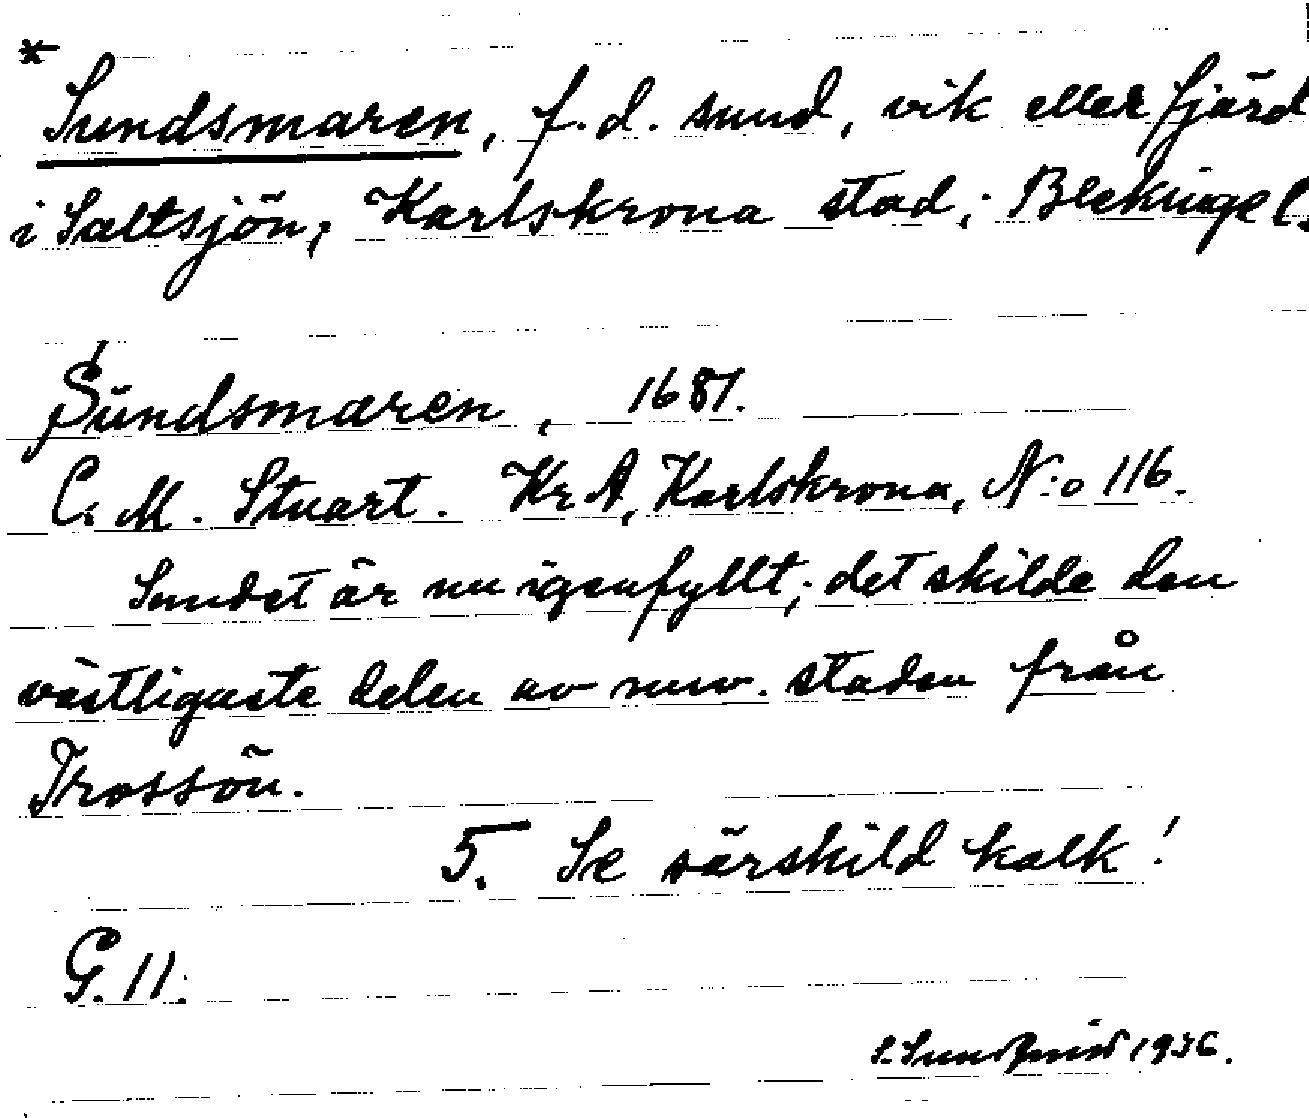 * Sundsmaren, f.d. sund, vik eller fjärd
i Saltsjön, Karlskrona stad, Blekinge l.
Sundsmaren, 1681.
C. M. Stuart. Kr A, Karlskrona, N:o 116.
Sundet är nu igenfyllt; det skilde den
västligaste delen av nuv. staden från
Trossön.
5. Se särskild kalk!
G. 11.
1936.